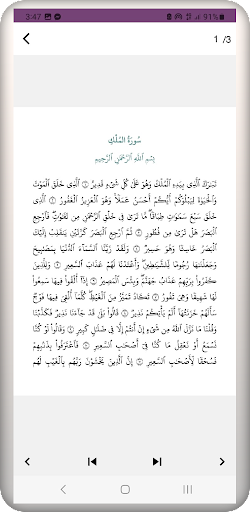 3:47 91%
1 /3
سُورَةُ المُلْكِ
بِسْمِ ٱللَّهِ ٱلرَّحْمَٰنِ ٱلرَّحِيمِ
تَبَٰرَكَ ٱلَّذِى بِيَدِهِ ٱلْمُلْكُ وَهُوَ عَلَىٰ كُلِّ شَىْءٍ قَدِيرٌ ۝١ ٱلَّذِى خَلَقَ ٱلْمَوْتَ
وَٱلْحَيَوٰةَ لِيَبْلُوَكُمْ أَيُّكُمْ أَحْسَنُ عَمَلًا وَهُوَ ٱلْعَزِيزُ ٱلْغَفُورُ ۝٢ ٱلَّذِى
خَلَقَ سَبْعَ سَمَٰوَٰتٍ طِبَاقًا مَّا تَرَىٰ فِى خَلْقِ ٱلرَّحْمَٰنِ مِن تَفَٰوُتٍ فَٱرْجِعِ
ٱلْبَصَرَ هَلْ تَرَىٰ مِن فُطُورٍ ۝٣ ثُمَّ ٱرْجِعِ ٱلْبَصَرَ كَرَّتَيْنِ يَنقَلِبْ إِلَيْكَ
ٱلْبَصَرُ خَاسِئًا وَهُوَ حَسِيرٌ ۝٤ وَلَقَدْ زَيَّنَّا ٱلسَّمَآءَ ٱلدُّنْيَا بِمَصَٰبِيحَ
وَجَعَلْنَٰهَا رُجُومًا لِّلشَّيَٰطِينِ وَأَعْتَدْنَا لَهُمْ عَذَابَ ٱلسَّعِيرِ ۝٥ وَلِلَّذِينَ
كَفَرُوا۟ بِرَبِّهِمْ عَذَابُ جَهَنَّمَ وَبِئْسَ ٱلْمَصِيرُ ۝٦ إِذَآ أُلْقُوا۟ فِيهَا سَمِعُوا۟
لَهَا شَهِيقًا وَهِىَ تَفُورُ ۝٧ تَكَادُ تَمَيَّزُ مِنَ ٱلْغَيْظِ كُلَّمَآ أُلْقِىَ فِيهَا فَوْجٌ
سَأَلَهُمْ خَزَنَتُهَآ أَلَمْ يَأْتِكُمْ نَذِيرٌ ۝٨ قَالُوا۟ بَلَىٰ قَدْ جَآءَنَا نَذِيرٌ فَكَذَّبْنَا
وَقُلْنَا مَا نَزَّلَ ٱللَّهُ مِن شَىْءٍ إِنْ أَنتُمْ إِلَّا فِى ضَلَٰلٍ كَبِيرٍ ۝٩ وَقَالُوا۟ لَوْ كُنَّا
نَسْمَعُ أَوْ نَعْقِلُ مَا كُنَّا فِىٓ أَصْحَٰبِ ٱلسَّعِيرِ ۝١٠ فَٱعْتَرَفُوا۟ بِذَنۢبِهِمْ
فَسُحْقًا لِّأَصْحَٰبِ ٱلسَّعِيرِ ۝١١ إِنَّ ٱلَّذِينَ يَخْشَوْنَ رَبَّهُم بِٱلْغَيْبِ لَهُم